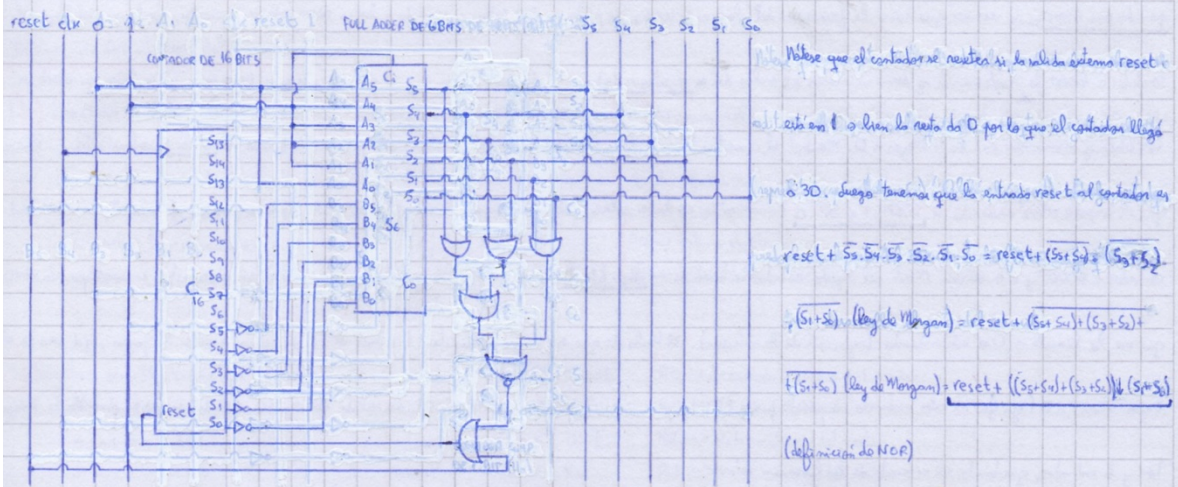 reset clk 0 1
FULL ADDER DE 6 BITS
S5 S4 S3 S2 S1 S0
CONTADOR DE 16 BITS
Ci
A5 S5
A4 S4
A3 S3
A2 S2
A1 S1
A0 S0
B5
B4 Σ6
B3
B2
B1 Co
B0
S15
S14
S13
S12
S11
S10
S9
S8
C16 S7
S6
S5
S4
S3
S2
S1
reset S0
Nótese que el contador se resetea si la salida externa reset
está en 1 o bien la resta da 0 por lo que el contador llegó
a 30. Luego tenemos que la entrada reset al contador es
reset + S̅5.S̅4.S̅3.S̅2.S̅1.S̅0 = reset + (S5+S4)‾ . (S3+S2)‾ .
. (S1+S0)‾ (Ley de Morgan) = reset + (S5+S4)+(S3+S2)+
+(S1+S0) (Ley de Morgan) = reset + ((S5+S4)+(S3+S2))↓(S1+S0)
(definición de NOR)